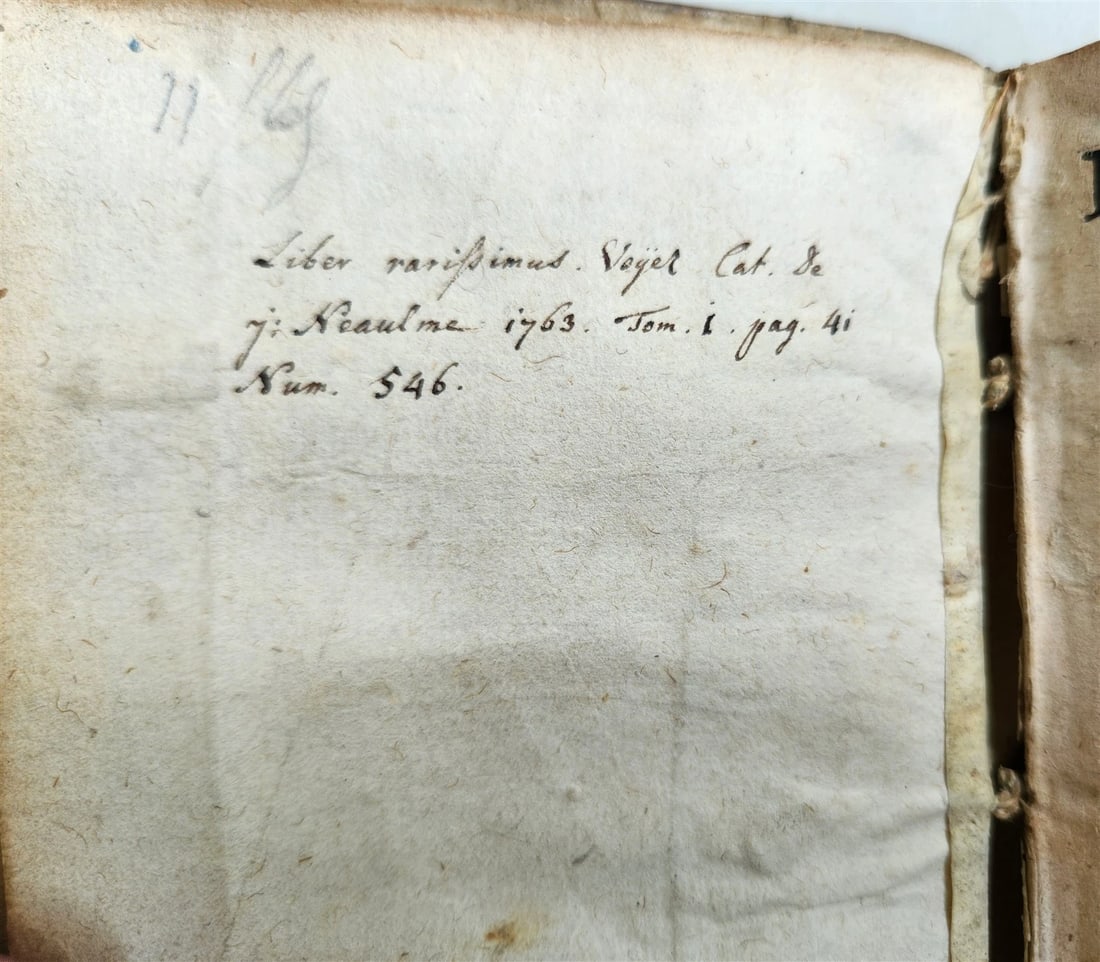 11
Liber rarißimus. Voÿez Cat. de
j: Neaulme 1763. Tom. 1. pag. 41
Num. 546.